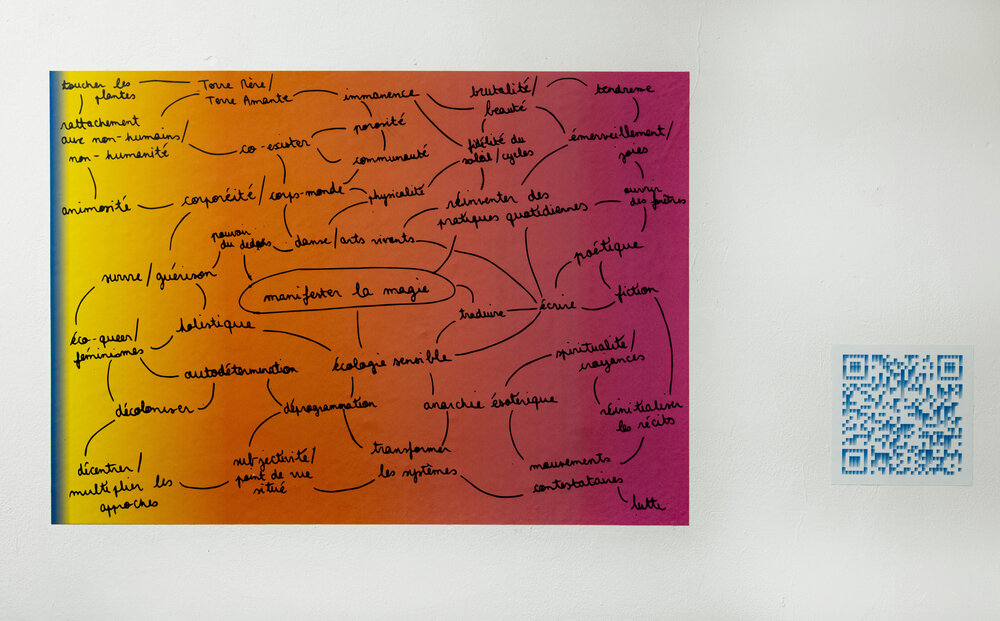 toucher les
plantes
Terre Mère/
Terre Amante
immanence
brutalité/
beauté
tendresse
rattachement
aux non-humains/
non-humanité
co-exister
porosité
communauté
fidélité du
soleil/cycles
émerveillement/
joies
animosité
corporéité/corps-monde
physicalité
réinventer des
pratiques quotidiennes
ouvrir
des fenêtres
pouvoir
du dedans
danse/arts vivants
poétique
survivre/guérison
manifester la magie
traduire
écrire
fiction
éco-queer/
féminismes
holistique
écologie sensible
spiritualité/
croyances
autodétermination
décoloniser
déprogrammation
anarchie ésotérique
réinitialiser
les récits
décentrer/
multiplier les
approches
subjectivité/
point de vue
situé
transformer
les systèmes
mouvements
contestataires
lutte